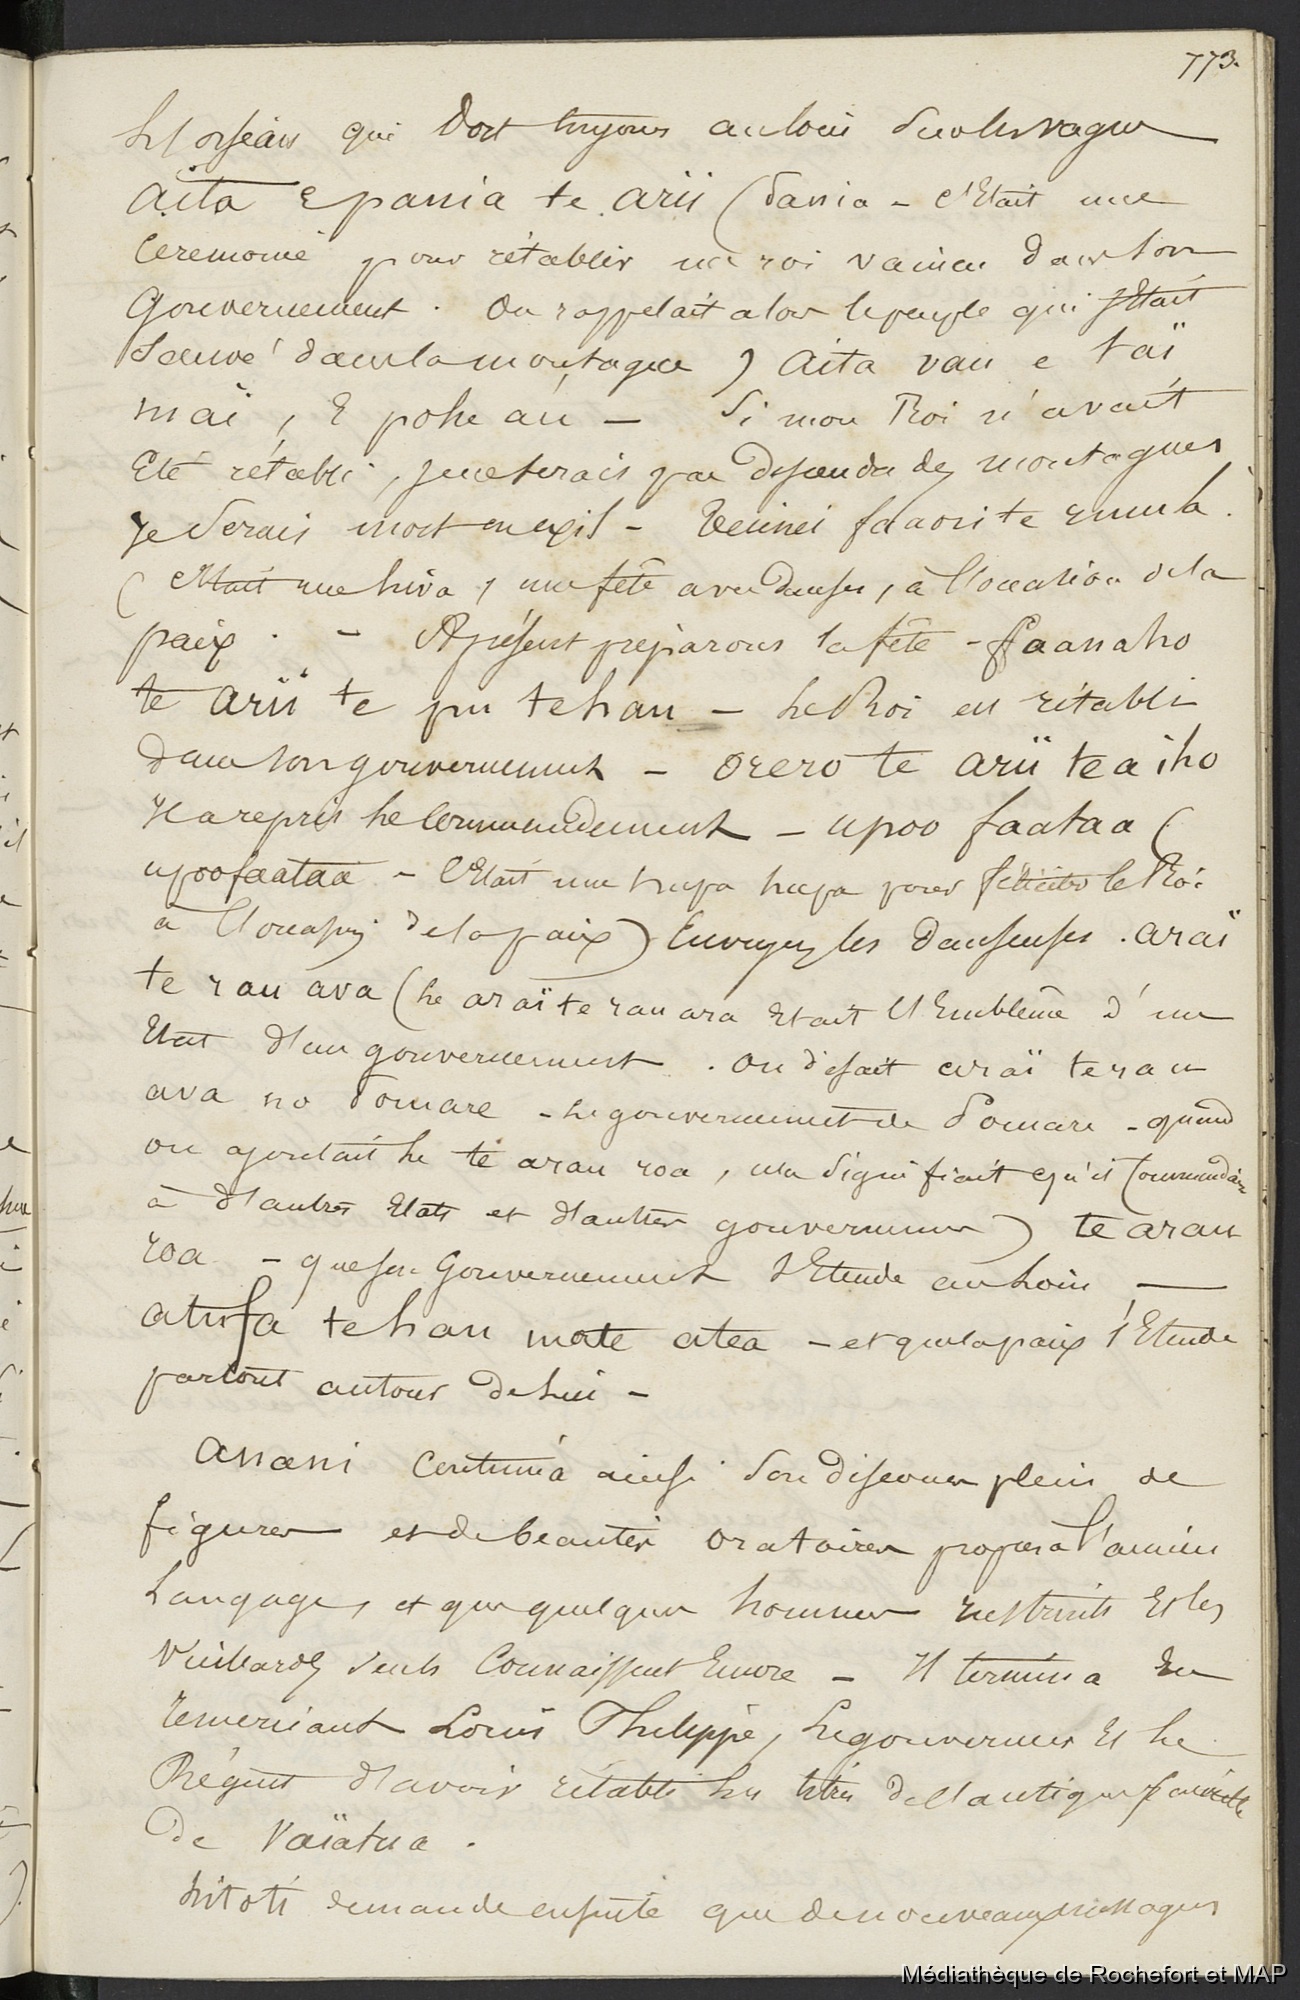 773.
les oiseaux qui dort toujours au loin sur les vagues
Aita e pania te arii (Pania - c'Etait une
Ceremonie pour rétablir un roi vaincu dans son
Gouvernement. On rappelait alors le peuple qui s'Etait
Sauvé dans la montagne) Aita vau e taï
mai, E pohe áu - Si mon Roi n'avait
Eté rétabli, je ne serais pas descendu des montagnes
je Serais mort en exil - faaorite
(c'Etait une hiva, une fête avec danses, à l'occasion de la
paix. - Aprésent préparons la fête - Faanaho
te Arii te pu te hau - Le Roi est rétabli
dans son gouvernement - Orero te Arii te a iho
Il a repris le Commandement - upoo faataa (
upoofaataa - C'Etait une hupa hupa pour féliciter le Roi
à l'occasion de la paix) Envoyez les danseuses. Araï
te rau ava (le araï te rau ava Etait l'Emblême d'un
Etat d'un gouvernement. On disait araï te rau
ava no Pomare - le gouvernement de Pomare - quand
on ajoutait le te arau roa, cela signifiait qu'il Commandait
à d'autres Etats et d'autres gouvernements) te arau
roa - que son Gouvernement s'Etende au loin -
atufa te hau mate atea - et que la paix s'Etende
partout autour de lui -
Anani Continua ainsi Son discours plein de
figures et de beautés oratoires propres à l'ancien
Langage, et que quelques hommes instruits Et les
Vieillards seuls Connaissent Encore - Il termina En
remerciant Louis Philippe, Le gouverneur Et le
Régent d'avoir rétabli les titres de l'antique famille
de Vaïatua.
hitoti demande ensuite que de nouveaux messagers
Médiathèque de Rochefort et MAP